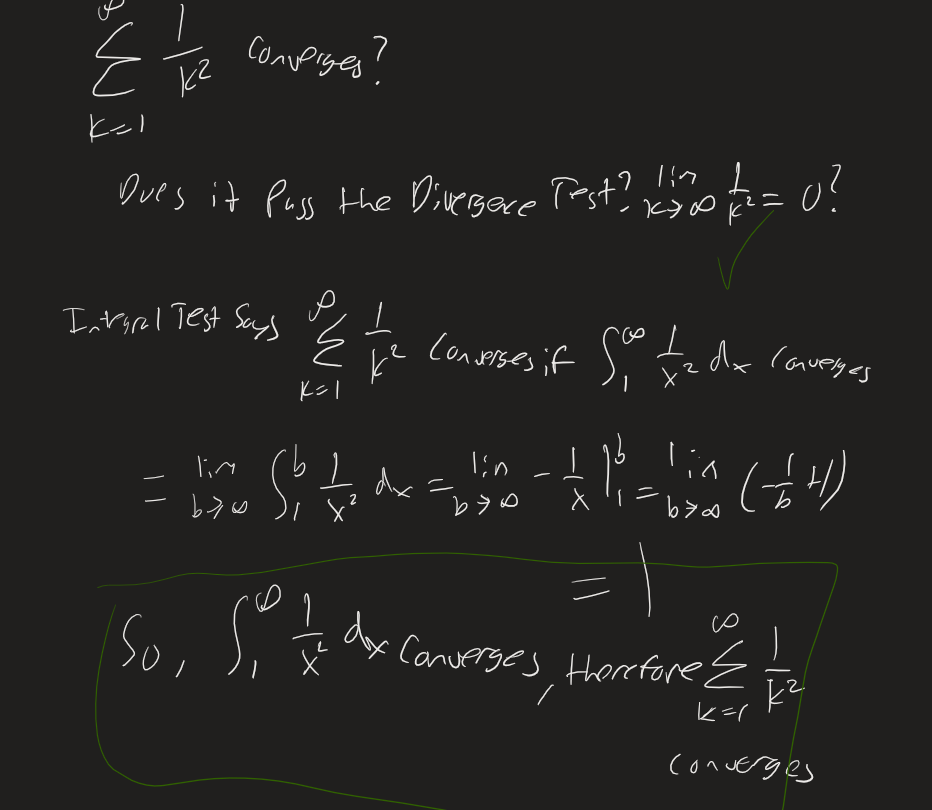 ∞∑k=1 1/k² Converges?
Does it Pass the Divergece Test? lim k→∞ 1/k² = 0?
Integral Test Says ∞∑k=1 1/k² Converges if ∫₁^∞ 1/x² dx Converges
= lim b→∞ ∫₁^b 1/x² dx = lim b→∞ -1/x |₁^b = lim b→∞ (-1/b +1)
= 1
So, ∫₁^∞ 1/x² dx Converges, therefore ∞∑k=1 1/k²
converges